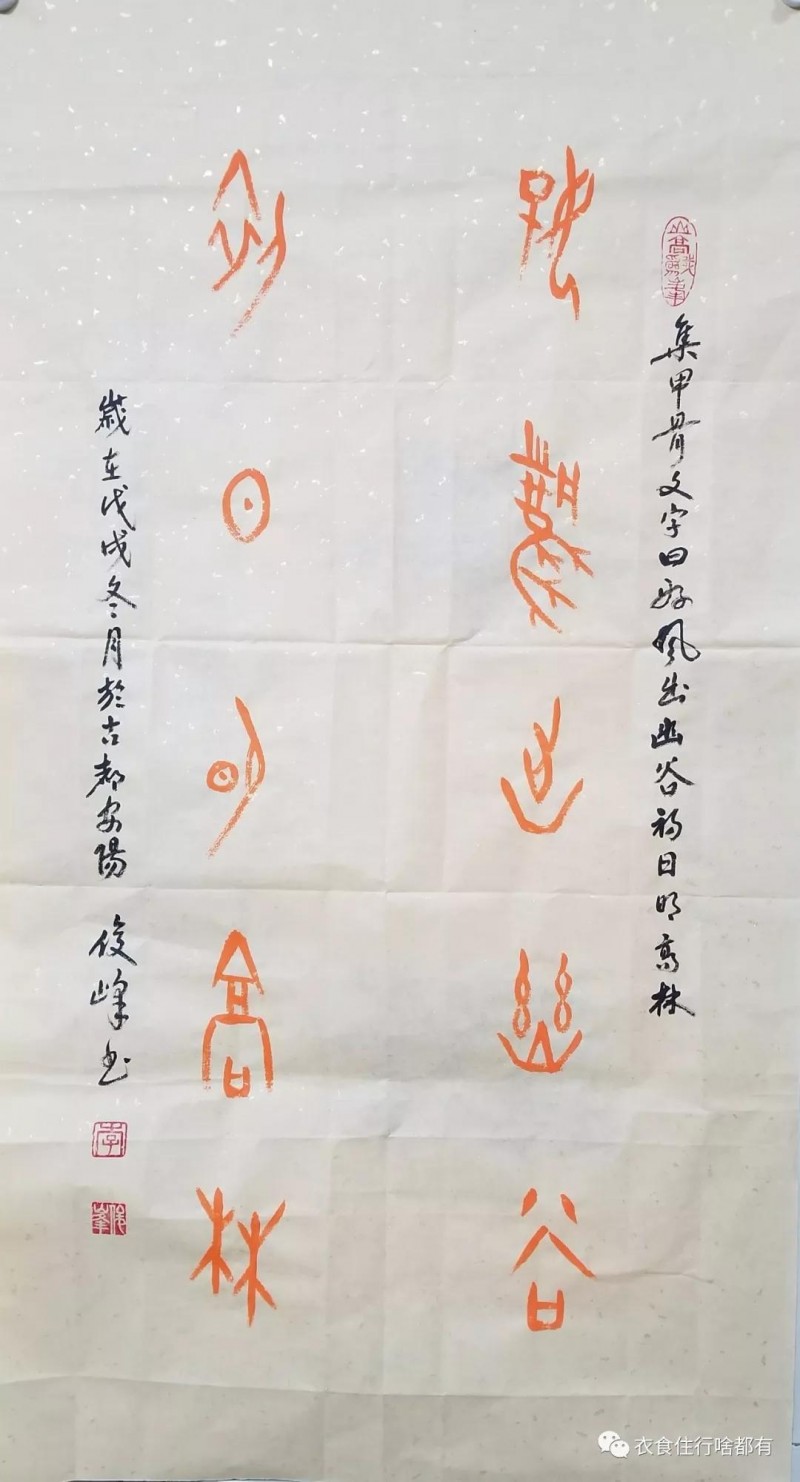 山高我為峯
集甲骨文字曰好風出幽谷初日明高林
好風出幽谷
初日明高林
歲在戊戌冬月於古都安陽 俊峰书
李
俊峯
衣食住行啥都有